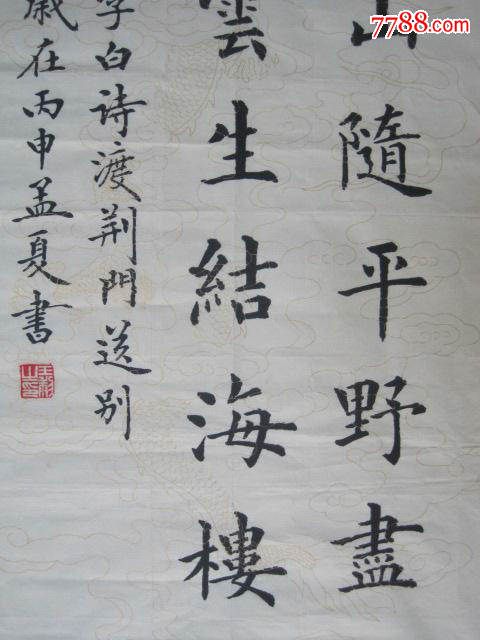 7788.com
山隨平野盡
雲生結海樓
李白诗渡荆門送别
歲在丙申孟夏書